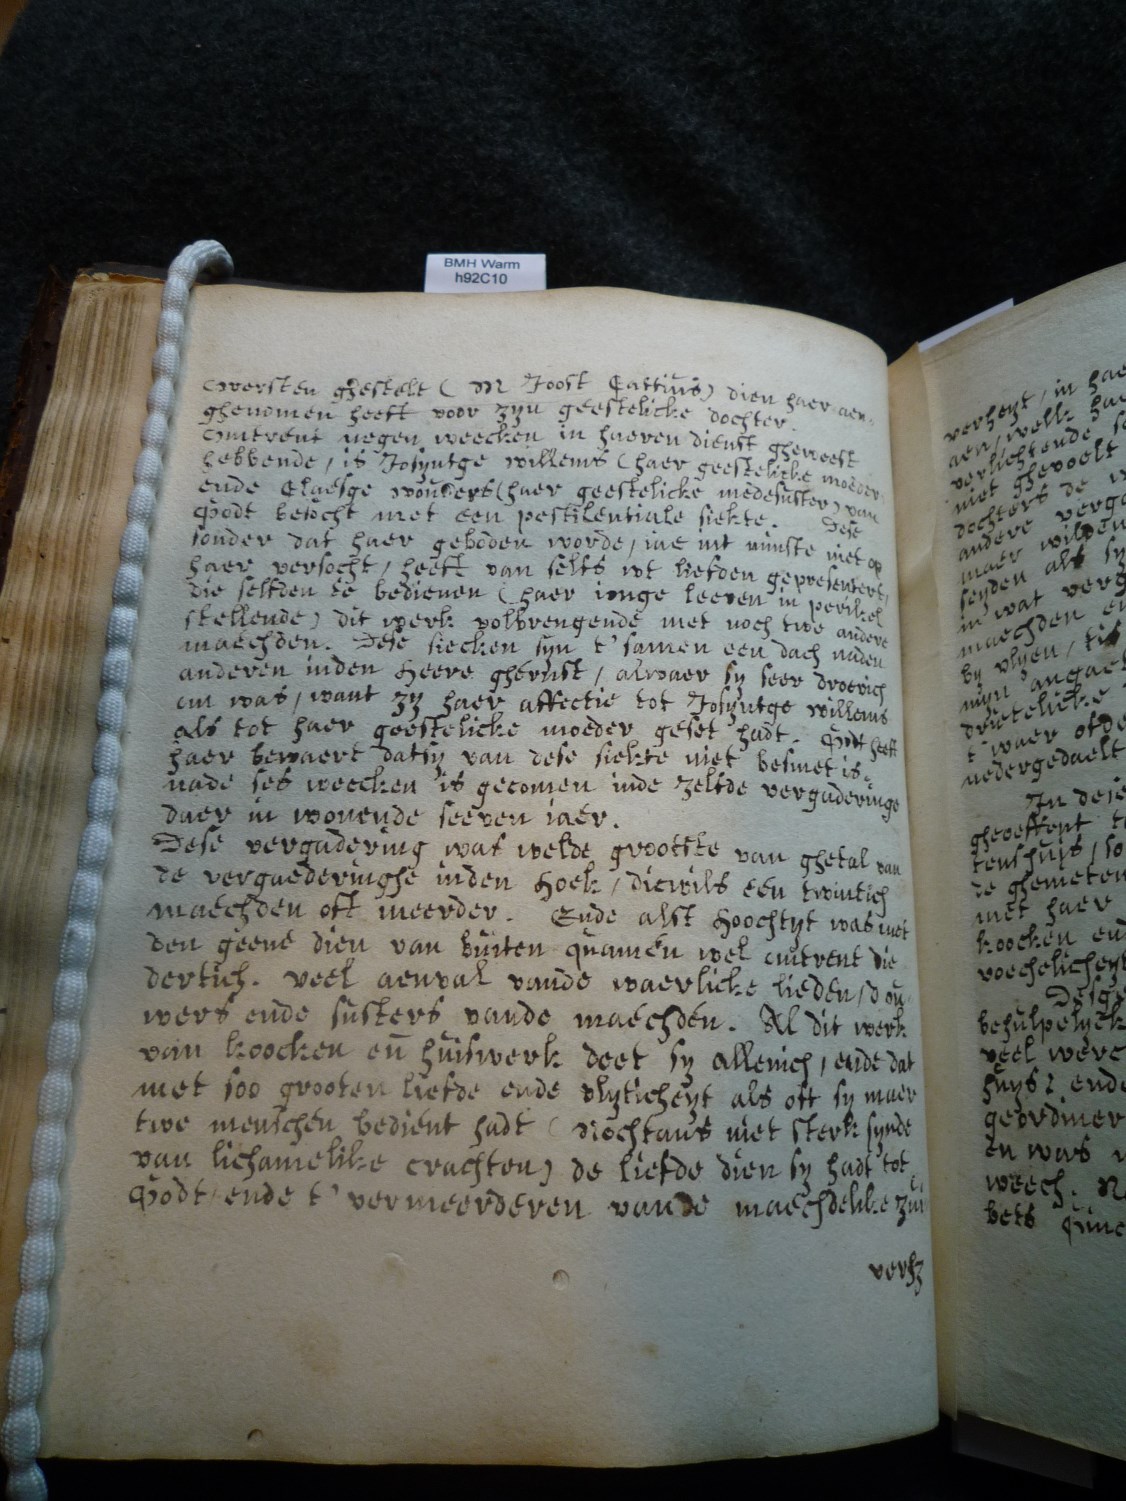 BMH Warm
h92C10
Oversten ghestelt ( M Joost Cattius) dien haer aen-
ghenomen heeft voor zyn geestelicke dochter.
Omtrent negen weecken in haeren dienst gheweest
hebbende, is Josyntge willems (haer geestelicke moeder)
ende Claesge wouters (haer geestelicke medesuster) van
Godt besocht met een pestilentiale siekte. Dese
sonder dat haer geboden worde, iae int minste niet op
haer versocht, heeft van selfs wt liefden gepresenteert,
die selfden te bedienen (haer ionge leeven in perikel
stellende) dit werk volbrengende met noch twe andere
maechden. Dese siecken syn t'samen een dach naden
anderen inden Heere gherust, alwaer sy seer droevich
om was, want zy haer affectie tot Josyntge willems
als tot haer geestelicke moeder geset hadt. Godt heeft
haer bewaert datsy van dese siekte niet besmet is.
nade ses weecken is gecomen inde zelfde vergaderinge
daer in wonende seeven iaer.
Dese vergadering was welde grootste van ghetal van
de vergaederinghe inden Hoek, dicwils een twintich
maechden oft meerder. Ende alst Hoochtyt was met
den geene dien van buiten quamen wel omtrent die
dertich. veel aenval vande waerlicke lieden, dou-
wers ende susters vande maechden. Al dit werk
van koocken en huiswerk deet sy allenich, ende dat
met soo grooten liefde ende vlyticheyt als oft sy maer
twe menschen bedient hadt (Nochtans niet sterk synde
van lichamelike crachten) de liefde dien sy hadt tot
Godt, ende t'vermeerderen vande maechdelike zui
verh
verheyt, in hae
aen, welk hae
verlichtende
niet ghevoelt
dochters de
andere verga
maer wilden
seyden als sy
in wat verg
maechden en
by vlyen, tis
myn aengae
drietelicke
t'waer of de
nedergedaelt
In dese
gheoeffent
tenshuis, so
de ghemeten
met haer
koocken en
voechelicheyt
Desge
behulpelyck
veel werc
huys: ende
geordineer
en was
weech.
bets